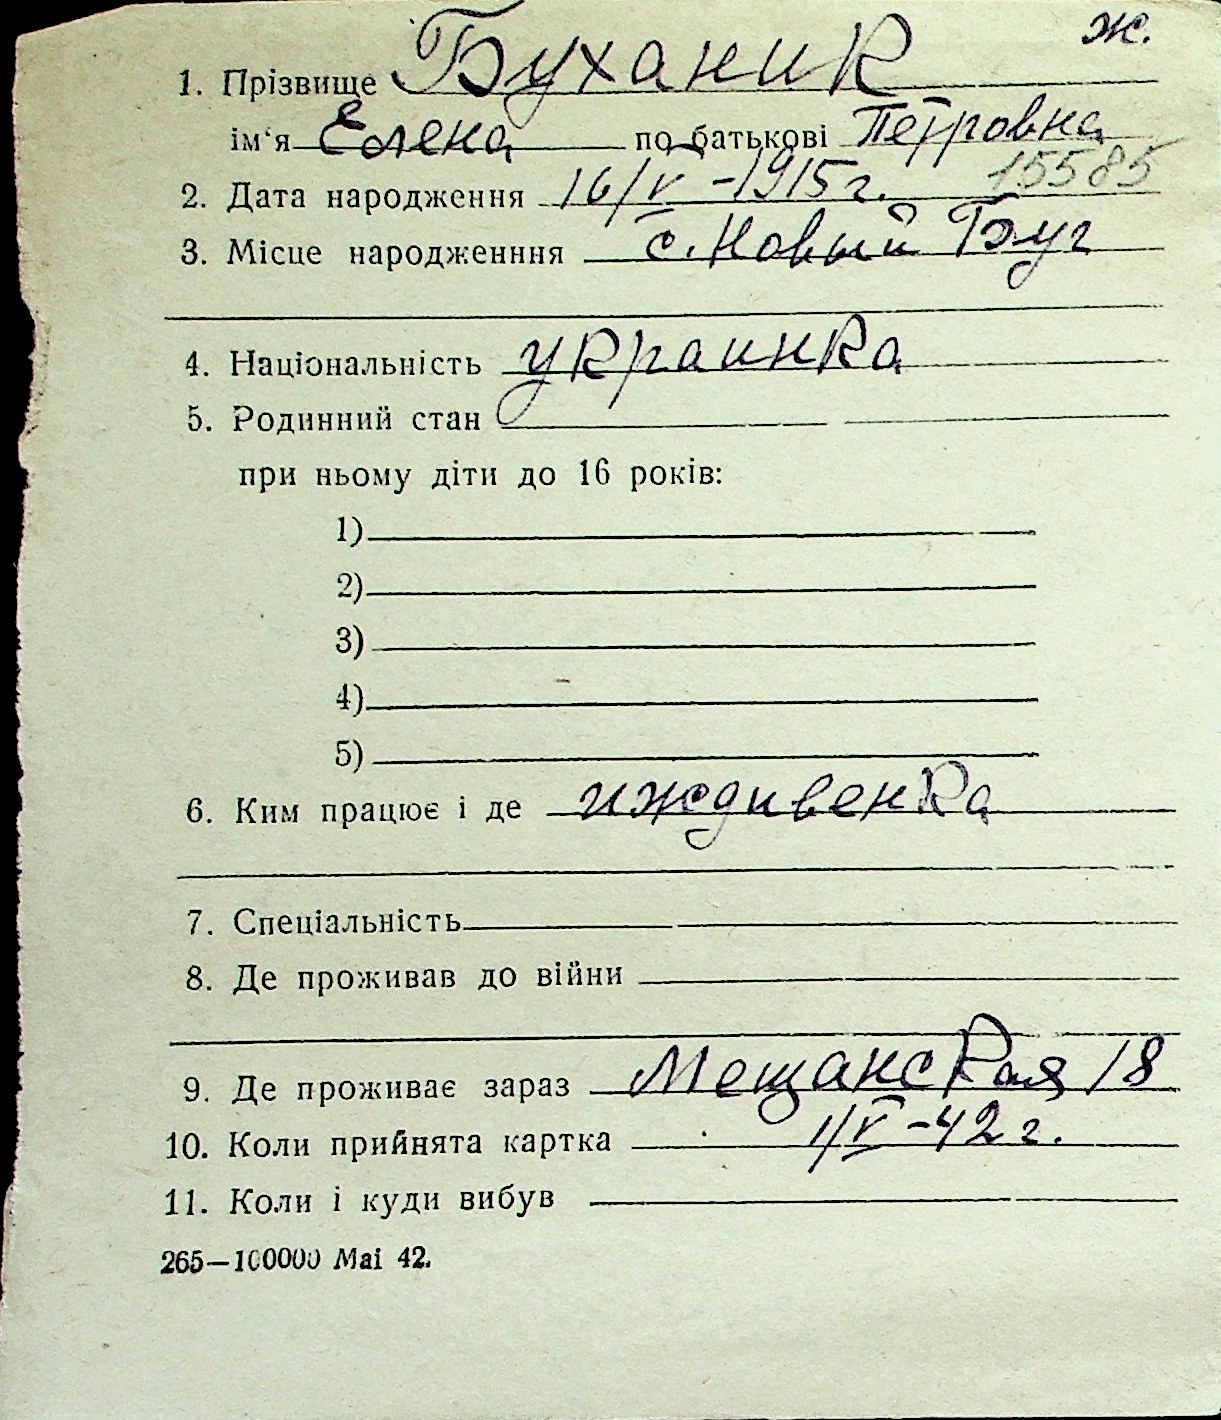 ж.
1. Прізвище Буханик
ім‘я Елена по батькові Петровна
15585
2. Дата народження 16/V-1915 г.
3. Місце народженння с. Новый Буг
4. Національність украинка
5. Родинний стан
при ньому діти до 16 років:
1)
2)
3)
4)
5)
6. Ким працює і де иждивенка
7. Спеціальність
8. Де проживав до війни
9. Де проживає зараз Мещанская 18
10. Коли прийнята картка 1/V-42 г.
11. Коли і куди вибув
265—100000 Mai 42.